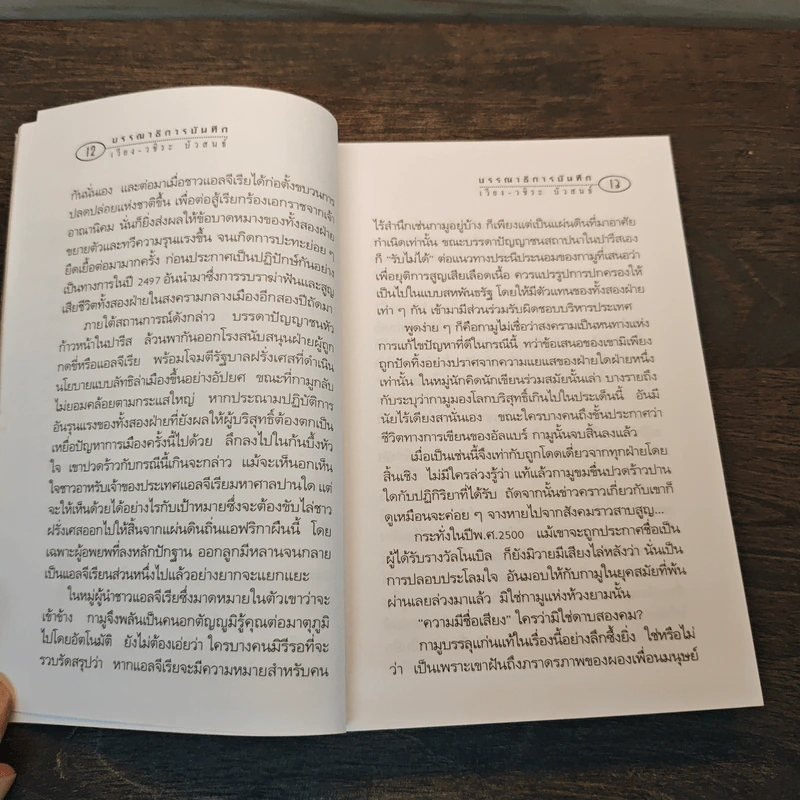 บรรณาธิการบันทึก
12
เวียง-วชิระ บัวสนธ์
กันนั่นเอง และต่อมาเมื่อชาวแอลจีเรียได้ก่อตั้งขบวนการ
ปลดปล่อยแห่งชาติขึ้น เพื่อต่อสู้เรียกร้องเอกราชจากเจ้า
อาณานิคม นั่นก็ยิ่งส่งผลให้ข้อบาดหมางของทั้งสองฝ่าย
ขยายตัวและทวีความรุนแรงขึ้น จนเกิดการปะทะย่อย ๆ
ยืดเยื้อต่อมามากครั้ง ก่อนประกาศเป็นปฏิปักษ์กันอย่าง
เป็นทางการในปี 2497 อันนำมาซึ่งการรบราฆ่าฟันและสูญ
เสียชีวิตทั้งสองฝ่ายในสงครามกลางเมืองอีกสองปีถัดมา
ภายใต้สถานการณ์ดังกล่าว บรรดาปัญญาชนหัว
ก้าวหน้าในปารีส ล้วนพากันออกโรงสนับสนุนฝ่ายผู้ถูก
กดขี่หรือแอลจีเรีย พร้อมโจมตีรัฐบาลฝรั่งเศสที่ดำเนิน
นโยบายแบบลัทธิล่าเมืองขึ้นอย่างอัปยศ ขณะที่กามูกลับ
ไม่ยอมคล้อยตามกระแสใหญ่ หากประณามปฏิบัติการ
อันรุนแรงของทั้งสองฝ่ายที่ยังผลให้ผู้บริสุทธิ์ต้องตกเป็น
เหยื่อปัญหาการเมืองครั้งนี้ไปด้วย ลึกลงไปในก้นบึ้งหัว
ใจ เขาปวดร้าวกับกรณีนี้เกินจะกล่าว แม้จะเห็นอกเห็น
ใจชาวอาหรับเจ้าของประเทศแอลจีเรียมหาศาลปานใด แต่
จะให้เห็นด้วยได้อย่างไรกับเป้าหมายซึ่งจะต้องขับไล่ชาว
ฝรั่งเศสออกไปให้สิ้นจากแผ่นดินถิ่นแอฟริกาผืนนี้ โดย
เฉพาะผู้อพยพที่ลงหลักปักฐาน ออกลูกมีหลานจนกลาย
เป็นแอลจีเรียนส่วนหนึ่งไปแล้วอย่างยากจะแยกแยะ
ในหมู่ผู้นำชาวแอลจีเรียซึ่งมาดหมายในตัวเขาว่าจะ
เข้าข้าง กามูจึงพลันเป็นคนอกตัญญูมิรู้คุณต่อมาตุภูมิ
ไปโดยอัตโนมัติ ยังไม่ต้องเอ่ยว่า ใครบางคนมิรีรอที่จะ
รวบรัดสรุปว่า หากแอลจีเรียจะมีความหมายสำหรับคน
บรรณาธิการบันทึก
เวียง-วชิระ บัวสนธ์
13
ไร้สำนึกเช่นกามูอยู่บ้าง ก็เพียงแต่เป็นแผ่นดินที่มาอาศัย
กำเนิดเท่านั้น ขณะบรรดาปัญญาชนสถาปนาในปารีสเอง
ก็ "รับไม่ได้" ต่อแนวทางประนีประนอมของกามูที่เสนอว่า
เพื่อยุติการสูญเสียเลือดเนื้อ ควรแปรรูปการปกครองให้
เป็นไปในแบบสหพันธรัฐ โดยให้มีตัวแทนของทั้งสองฝ่าย
เท่า ๆ กัน เข้ามามีส่วนร่วมรับผิดชอบบริหารประเทศ
พูดง่าย ๆ ก็คือกามูไม่เชื่อว่าสงครามเป็นหนทางแห่ง
การแก้ไขปัญหาที่ดีในกรณีนี้ ทว่าข้อเสนอของเขามิเพียง
ถูกปัดทิ้งอย่างปราศจากความแยแสของฝ่ายใดฝ่ายหนึ่ง
เท่านั้น ในหมู่นักคิดนักเขียนร่วมสมัยนั้นเล่า บางรายถึง
กับระบุว่ากามูมองโลกบริสุทธิ์เกินไปในประเด็นนี้ อันมี
นัยไร้เดียงสานั่นเอง ขณะใครบางคนถึงขั้นประกาศว่า
ชีวิตทางการเขียนของอัลแบร์ กามูนั้นจบสิ้นลงแล้ว
เมื่อเป็นเช่นนี้จึงเท่ากับถูกโดดเดี่ยวจากทุกฝ่ายโดย
สิ้นเชิง ไม่มีใครล่วงรู้ว่า แท้แล้วกามูขมขื่นปวดร้าวปาน
ใดกับปฏิกิริยาที่ได้รับ ถัดจากนั้นข่าวคราวเกี่ยวกับเขาก็
ดูเหมือนจะค่อย ๆ จางหายไปจากสังคมราวสาบสูญ...
กระทั่งในปีพ.ศ.2500 แม้เขาจะถูกประกาศชื่อเป็น
ผู้ได้รับรางวัลโนเบิล ก็ยังมิวายมีเสียงไล่หลังว่า นั่นเป็น
การปลอบประโลมใจ อันมอบให้กับกามูในยุคสมัยที่พ้น
ผ่านเลยล่วงมาแล้ว มิใช่กามูแห่งห้วงยามนั้น
"ความมีชื่อเสียง" ใครว่ามิใช่ดาบสองคม?
กามูบรรลุแก่นแท้ในเรื่องนี้อย่างลึกซึ้งยิ่ง ใช่หรือไม่
ว่า เป็นเพราะเขาฝันถึงภราดรภาพของผองเพื่อนมนุษย์